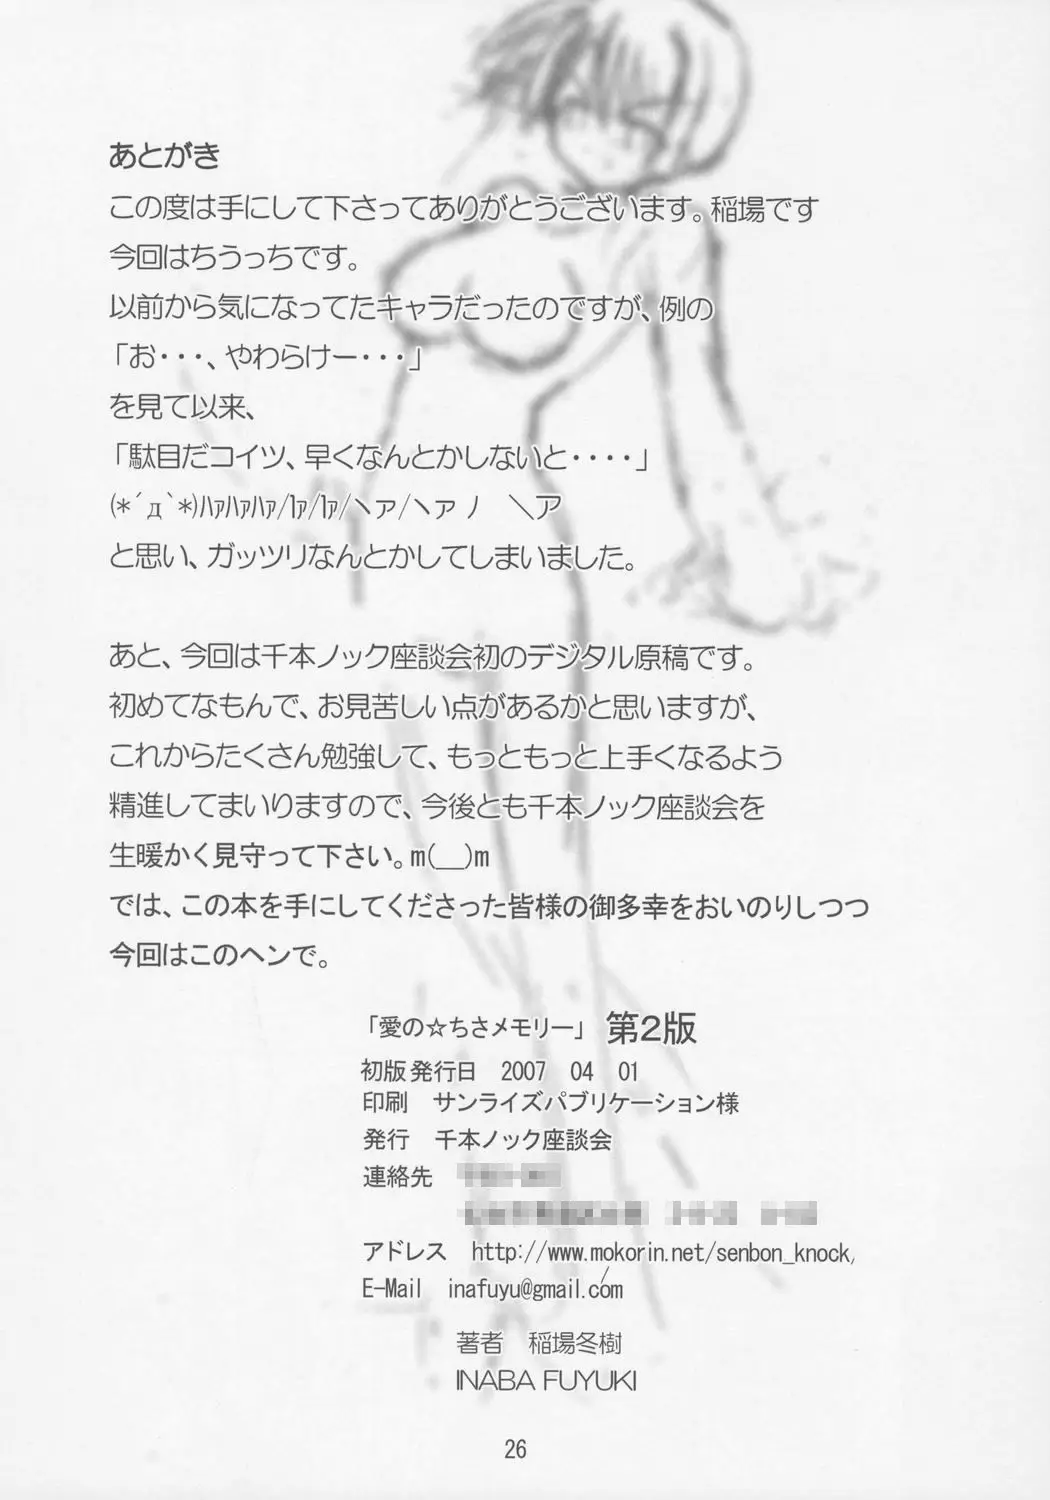 あとがき
この度は手にして下さってありがとうございます。稲場です
今回はちうっちです。
以前から気になってたキャラだったのですが、例の
「お・・・、やわらけー・・・」
を見て以来、
「駄目だコイツ、早くなんとかしないと・・・・」
(*´д`*)ﾊｧﾊｧﾊｧ/ｌｧ/ｌｧ/ヽァ/ヽァ ﾉ　＼ア
と思い、ガッツリなんとかしてしまいました。
あと、今回は千本ノック座談会初のデジタル原稿です。
初めてなもんで、お見苦しい点があるかと思いますが、
これからたくさん勉強して、もっともっと上手くなるよう
精進してまいりますので、今後とも千本ノック座談会を
生暖かく見守って下さい。m(__)m
では、この本を手にしてくださった皆様の御多幸をおいのりしつつ
今回はこのヘンで。
「愛の☆ちさメモリー」 第2版
初版発行日　2007　04　01
印刷　サンライズパブリケーション様
発行　千本ノック座談会
連絡先
アドレス　http://www.mokorin.net/senbon_knock/
E-Mail　inafuyu@gmail.com
著者　稲場冬樹
INABA FUYUKI
26